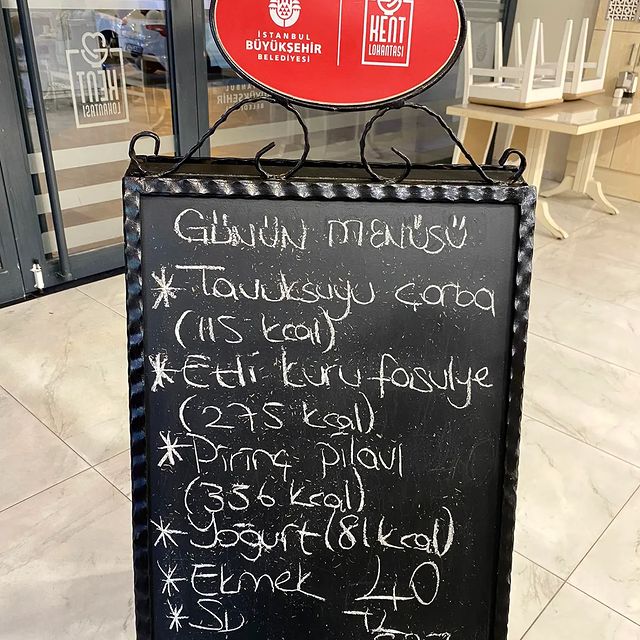 İSTANBUL
BÜYÜKŞEHİR
BELEDİYESİ
KENT
LOKANTASI
KENT
LOKANTASI
GÜNÜN MENÜSÜ
* Tavuksuyu çorba
(115 kcal)
* Etli kuru fasulye
(275 kcal)
* Pirinç pilavı
(356 kcal)
* Yoğurt (81 kcal)
* Ekmek 40
* Su TL